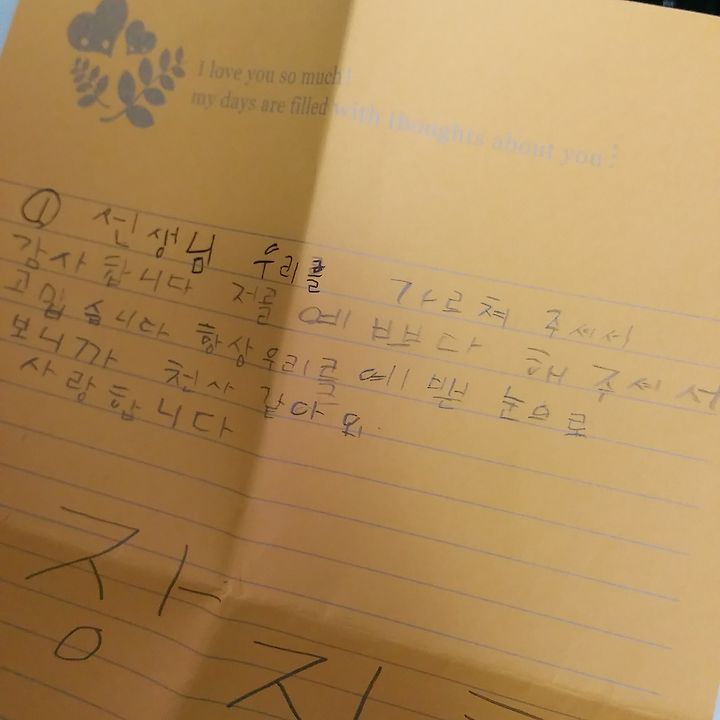 I love you so much!
my days are filled with thoughts about you
① 선생님 우리를 가르쳐 주셔서
감사합니다 저를 예쁘다 해 주셔서
고맙습니다 항상 우리를 예쁜 눈으로
보니까 천사 같아요
사랑합니다
장